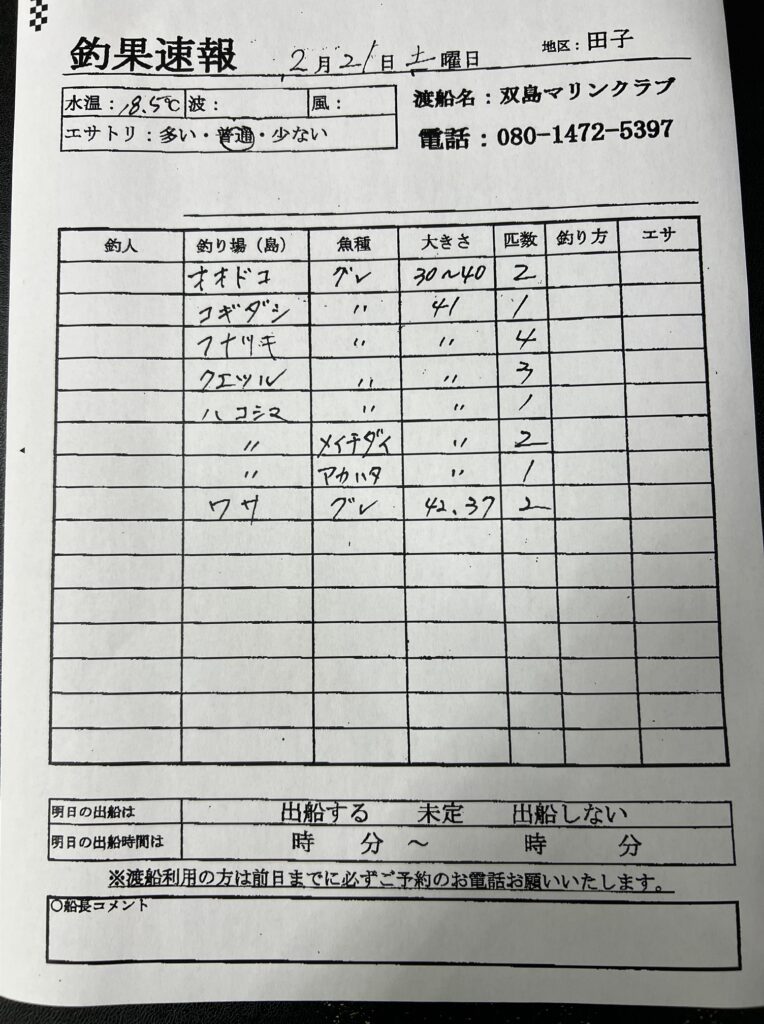 釣果速報 2月21日土曜日 地区:田子
水温:18.5℃ 波: 風:
渡船名:双島マリンクラブ
エサトリ:多い・普通・少ない
電話:080-1472-5397
釣人 釣り場(島) 魚種 大きさ 匹数 釣り方 エサ
オオドコ グレ 30~40 2
コギダシ 〃 41 1
フナツキ 〃 〃 4
クエツル 〃 〃 3
ハコシマ 〃 〃 1
〃 メイチダイ 〃 2
〃 アカハタ 〃 1
ワサ グレ 42、37 2
明日の出船は 出船する 未定 出船しない
明日の出船時間は 時 分 ~ 時 分
※渡船利用の方は前日までに必ずご予約のお電話お願いいたします。
○船長コメント